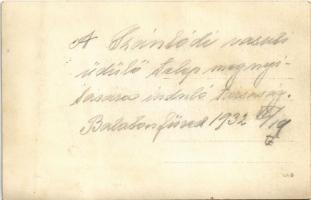 A Szántódi vasuti
üdülő telep megnyi-
tására induló társaság.
Balatonfüred 1932 /19